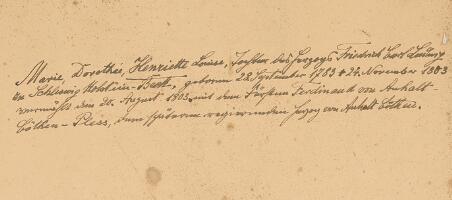 Marie, Dorothée, Henriette Louise, Tochter des Herzogs Friedrich Carl Ludwig
zu Schleswig Holstein-Beck, geboren 28. September 1783 † 24. November 1803
vermählt den 20. August 1803, mit dem Fürsten Ferdinand von Anhalt-
Cöthen-Pless, dem späteren regierenden Herzog von Anhalt Cöthen.